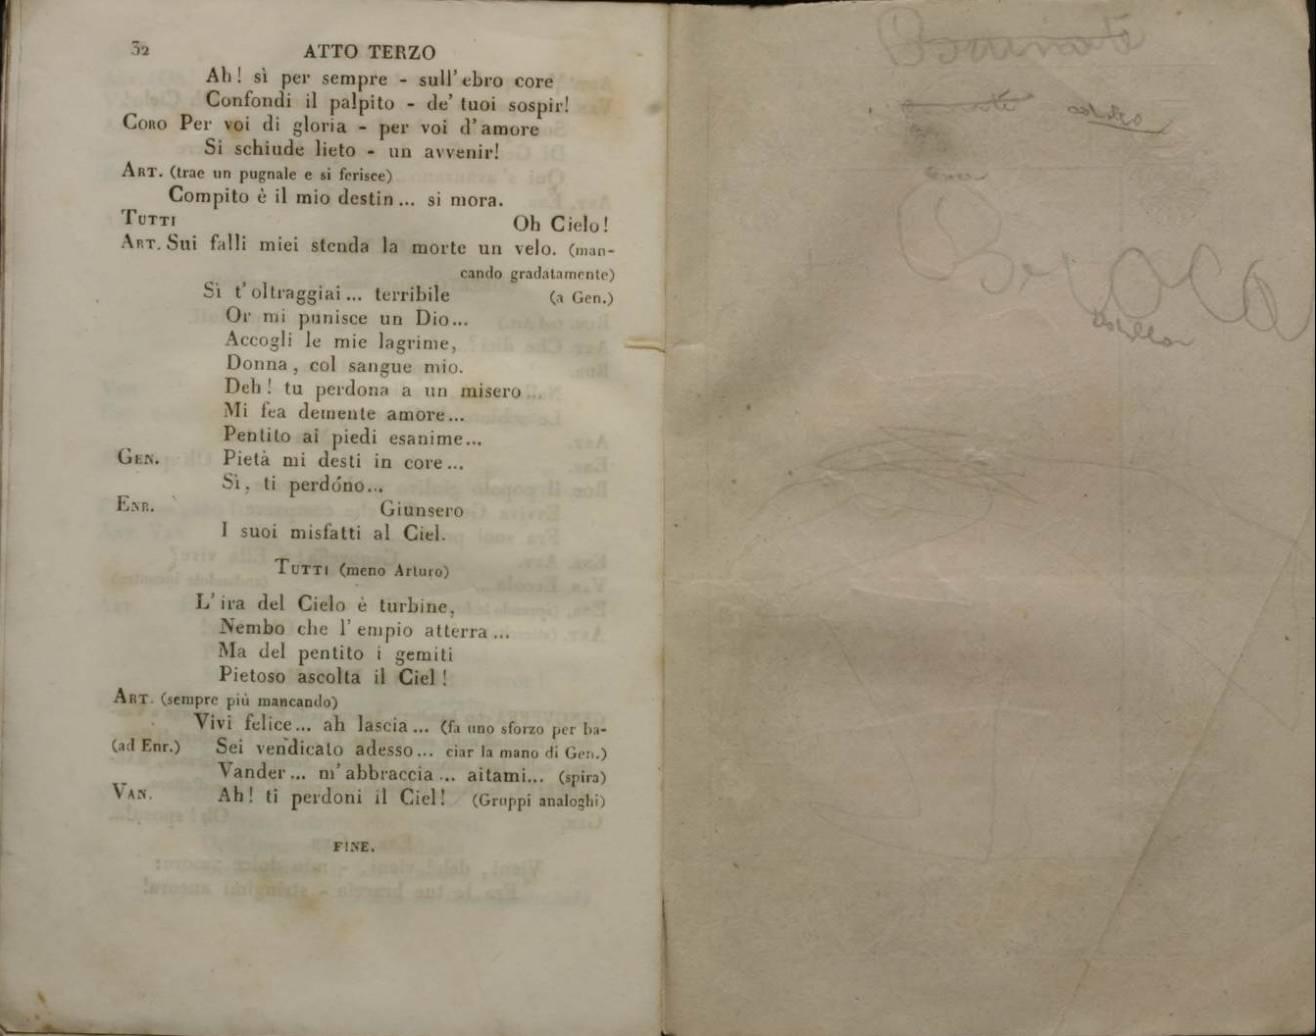 32 ATTO TERZO
Ah! sì per sempre - sull' ebro core
Confondi il palpito - de' tuoi sospir!
CORO Per voi di gloria - per voi d'amore
Si schiude lieto - un avvenir!
ART. (trae un pugnale e si ferisce)
Compito è il mio destin... si mora.
TUTTI Oh Cielo!
ART. Sui falli miei stenda la morte un velo. (man-
cando gradatamente)
Sì t' oltraggiai... terribile (a Gen.)
Or mi punisce un Dio...
Accogli le mie lagrime,
Donna, col sangue mio.
Deh! tu perdona a un misero...
Mi fea demente amore...
Pentito ai piedi esanime...
GEN. Pietà mi desti in core...
Sì, ti perdóno...
ENR. Giunsero
I suoi misfatti al Ciel.
TUTTI (meno Arturo)
L' ira del Cielo è turbine,
Nembo che l' empio atterra...
Ma del pentito i gemiti
Pietoso ascolta il Ciel!
ART. (sempre più mancando)
Vivi felice... ah lascia... (fa uno sforzo per ba-
(ad Enr.) Sei vendicato adesso... ciar la mano di Gen.)
Vander... m' abbraccia... aitami... (spira)
VAN. Ah! ti perdoni il Ciel! (Gruppi analoghi)
FINE.